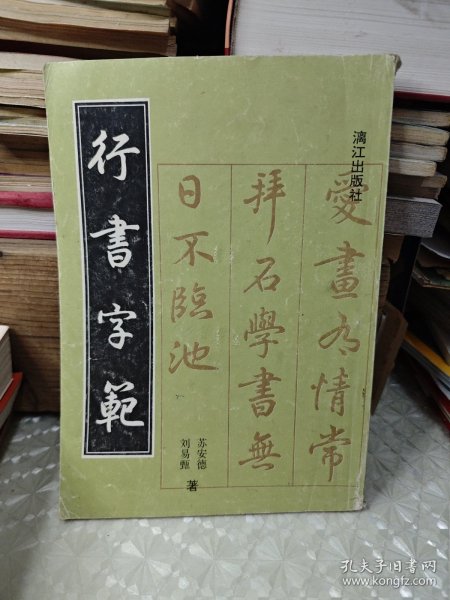 行書字範
愛畫有情常
拜石學書無
日不臨池
漓江出版社
苏安德
刘易甄
著
孔夫子旧书网
www.kongfz.com